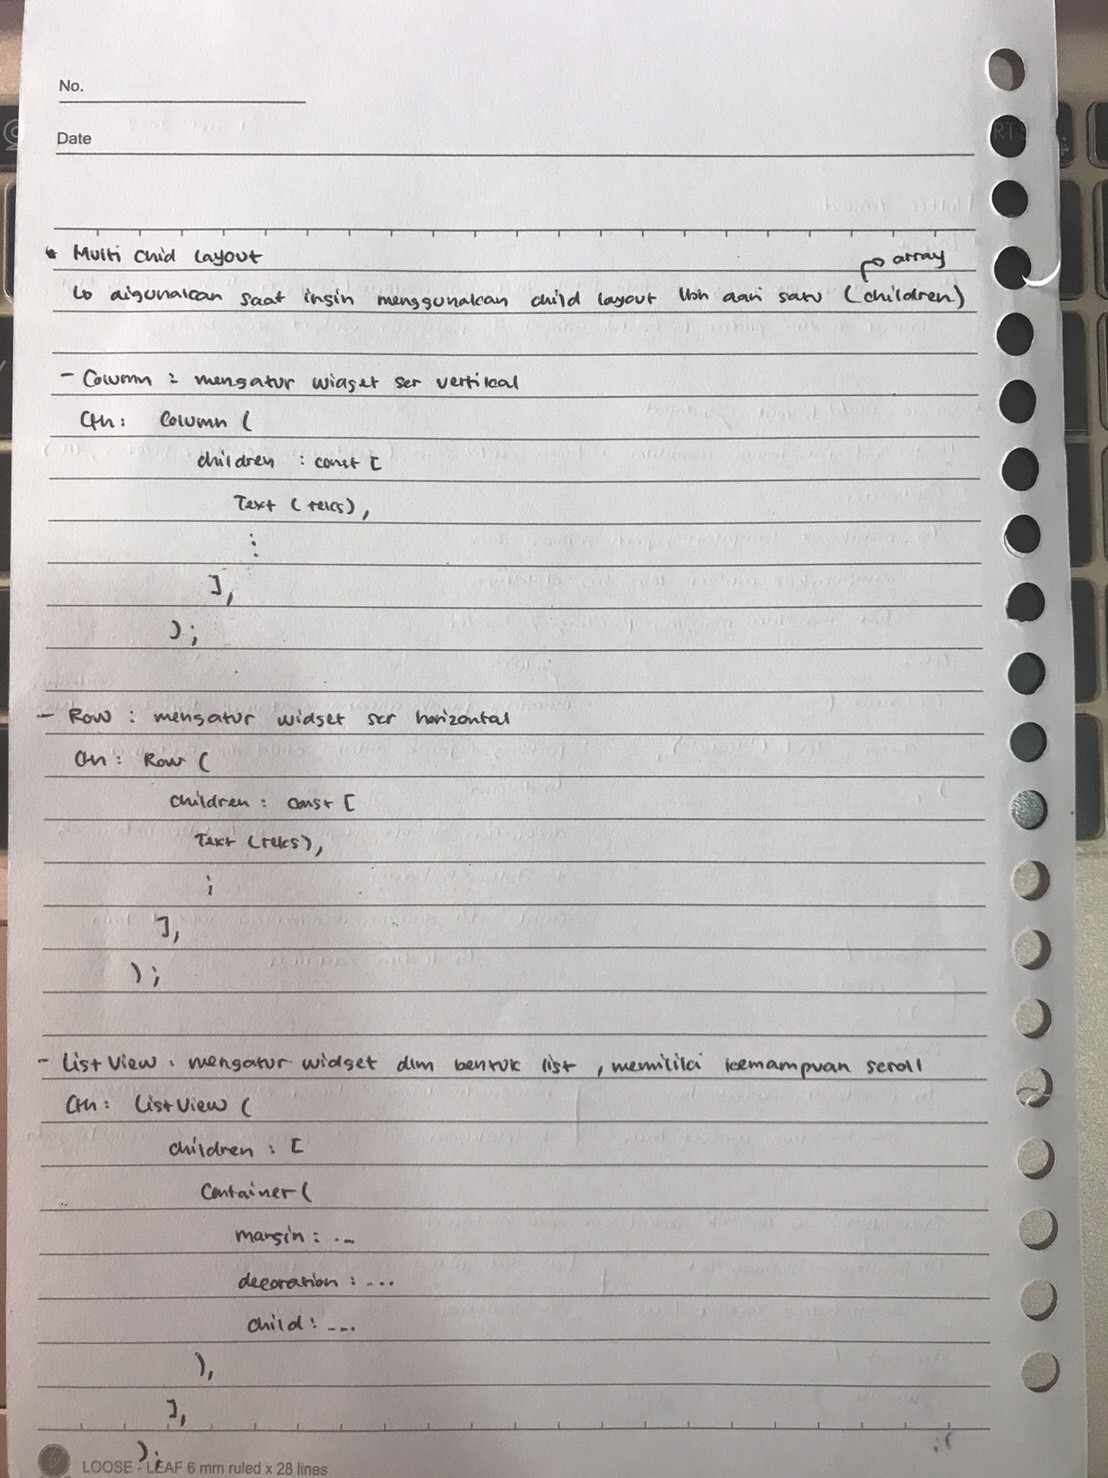 No.
Date
• Multi Child Layout
→ array
↳ digunakan saat ingin menggunakan child layout lbh dari satu (children)
- Column : mengatur widget scr vertikal
Cth: Column (
children : const [
Text (teks),
⋮
],
);
- Row : mengatur widget scr horizontal
Cth: Row (
children : const [
Text (teks),
⋮
],
);
- ListView : mengatur widget dlm bentuk list , memiliki kemampuan scroll
Cth: ListView (
children : [
Container (
margin : ...
decoration : ...
child : ...
),
],
);
LOOSE - LEAF 6 mm ruled x 28 lines